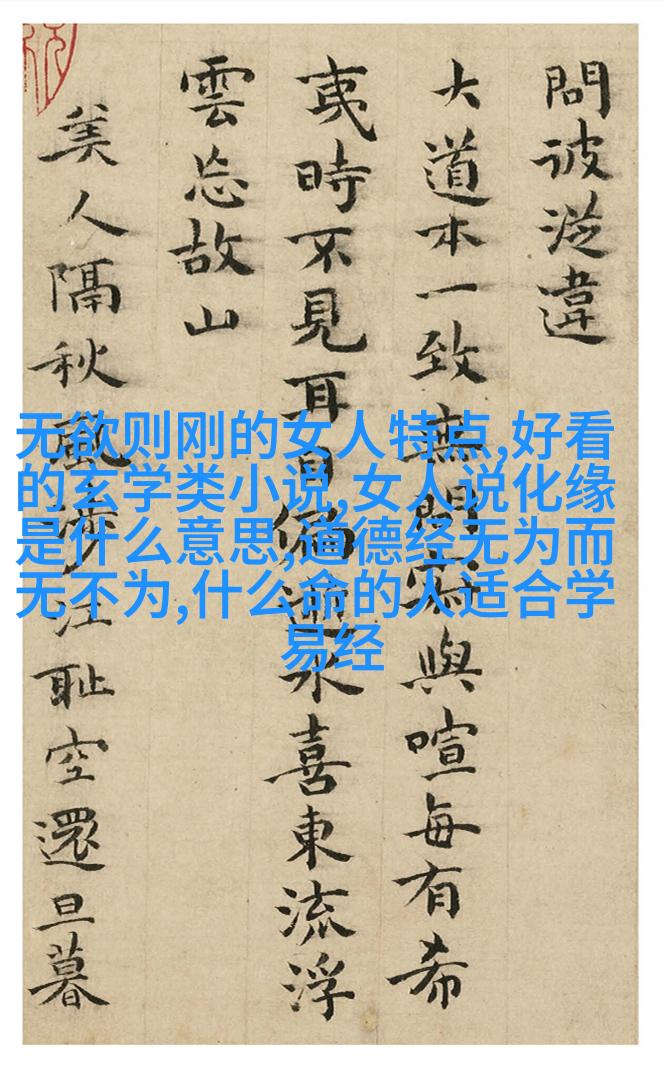 問彼違
大道本一致無問與喧每有希
夷時不見耳目水喜東流浮
雲忘故山
美人隔秋風涉江恥空還旦暮
无欲则刚的女人特点,好看
的玄学类小说,女人说化缘
是什么意思,道德经无为而
无不为,什么命的人适合学
易经